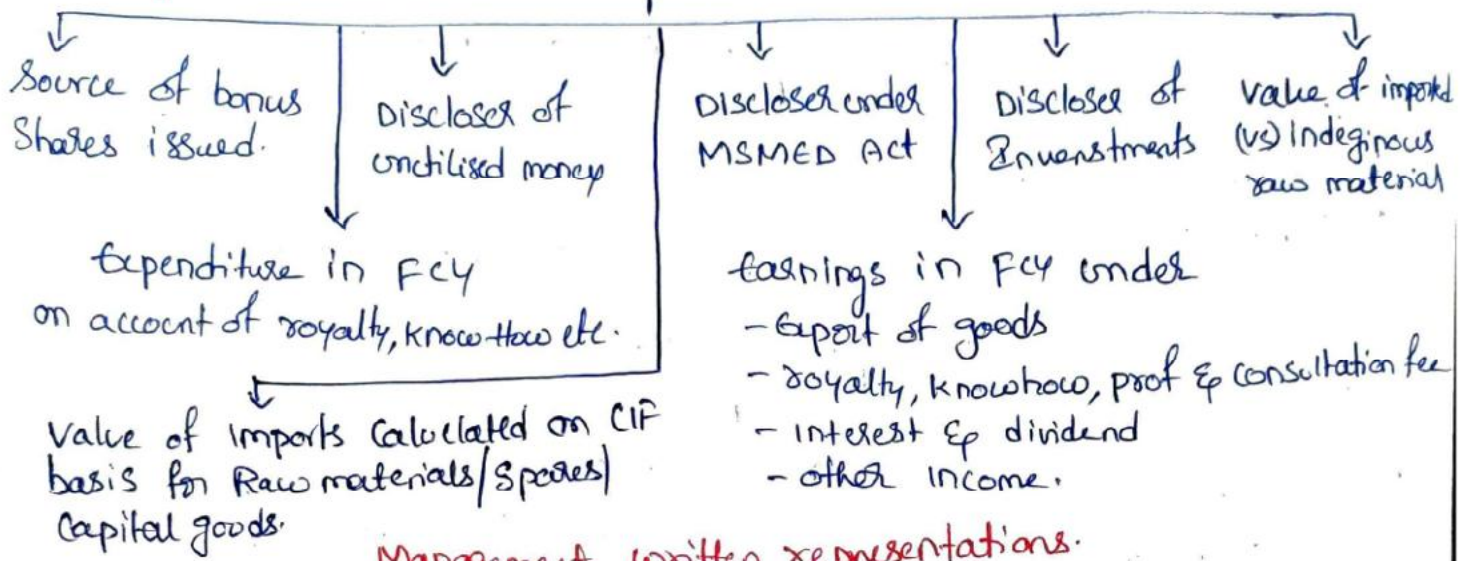 Source of bonus
Shares issued.
Discloser of
unctilised money
Discloser under
MSMED Act
Discloser of
Invenstments
value of imported
(vs) Indeginous
raw material
Expenditure in FCY
on account of royalty, know-How etc.
Earnings in FCY under
- Export of goods
- royalty, knowhow, prof & consultation fee
- interest & dividend
- other income.
value of imports Calculated on CIF
basis for Raw materials/Spares/
Capital goods.
Management written representations.